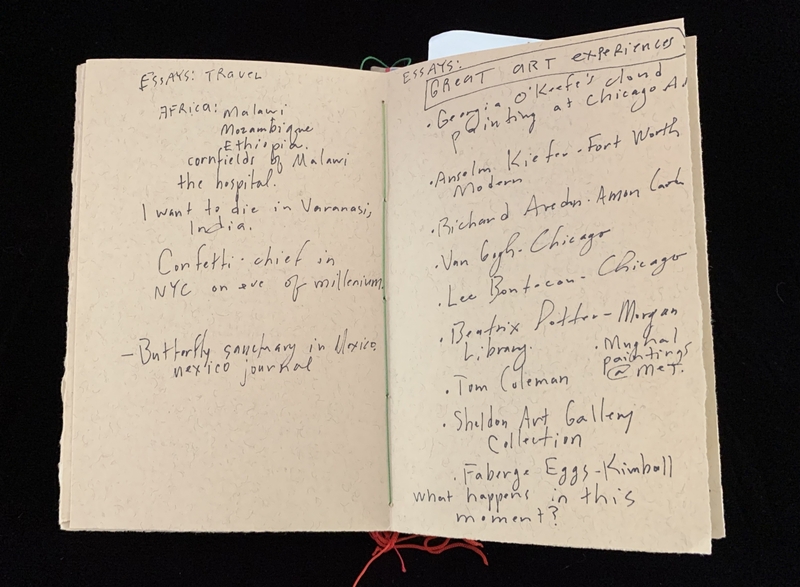 ESSAYS: TRAVEL
AFRICA: Malawi
Mozambique
Ethiopia.
cornfields of Malawi
the hospital.
I want to die in Varanasi,
India.
Confetti-chief in
NYC on eve of millenium.
- Butterfly sanctuary in Mexico.
mexico journal
ESSAYS:
GREAT ART EXPERIENCES.
• Georgia O'Keefe's cloud
painting at Chicago A
• Anselm Kiefer - Fort Worth
Modern
• Richard Avedn - Amon
• Van Gogh - Chicago
• Lee Bontecou - Chicago
• Beatrix Potter - Morgan
Library.
• Mughal
paintings
@ MET.
• Tom Coleman
• Sheldon Art Gallery
Collection
• Faberge Eggs - Kimball
what happens in this
moment?